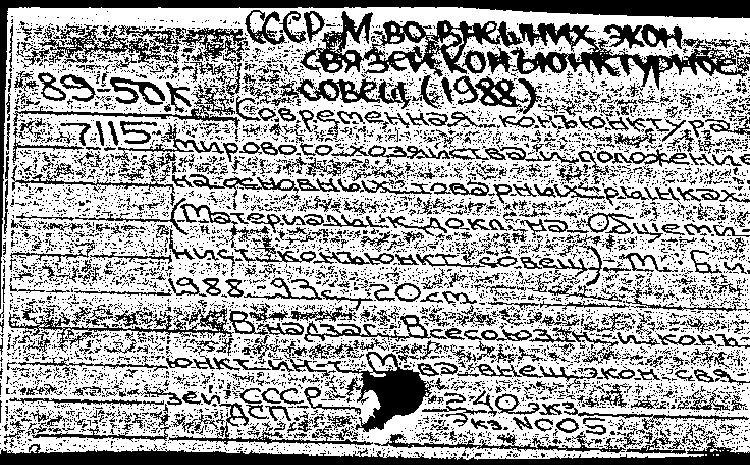 СССР М во внешних экон
связей Конъюнктурное
89-50к совещ (1988)
Современная конъюнктура
7115
мирового хозяйства и положение
на основных товарных рынках
(Материалы к докл. на Общети-
нист. конъюнкт. совещ) - М.: Б.и.
1988. - 93 с.; 20 см.
В надзаг. Всесоюз. н-и конъ-
юнкт. ин-т М ва внеш экон свя-
зей СССР 240 экз.
ДСП. Экз. N005